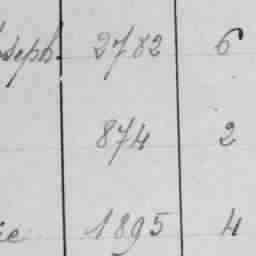 oseph. 2782 6
874 2
ie 1895 4